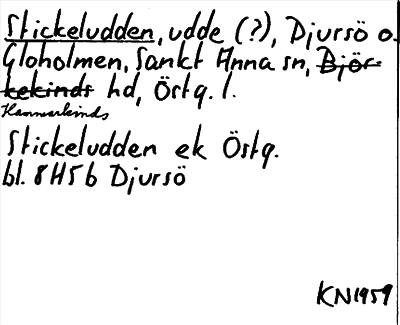 Stickeludden, udde (?), Djursö o.
Gloholmen, Sankt Anna sn, Björ-
kekinds hd, Östg. l.
Hammarkinds
Stickeludden ek Östg.
bl. 8H5b Djursö
KN1959